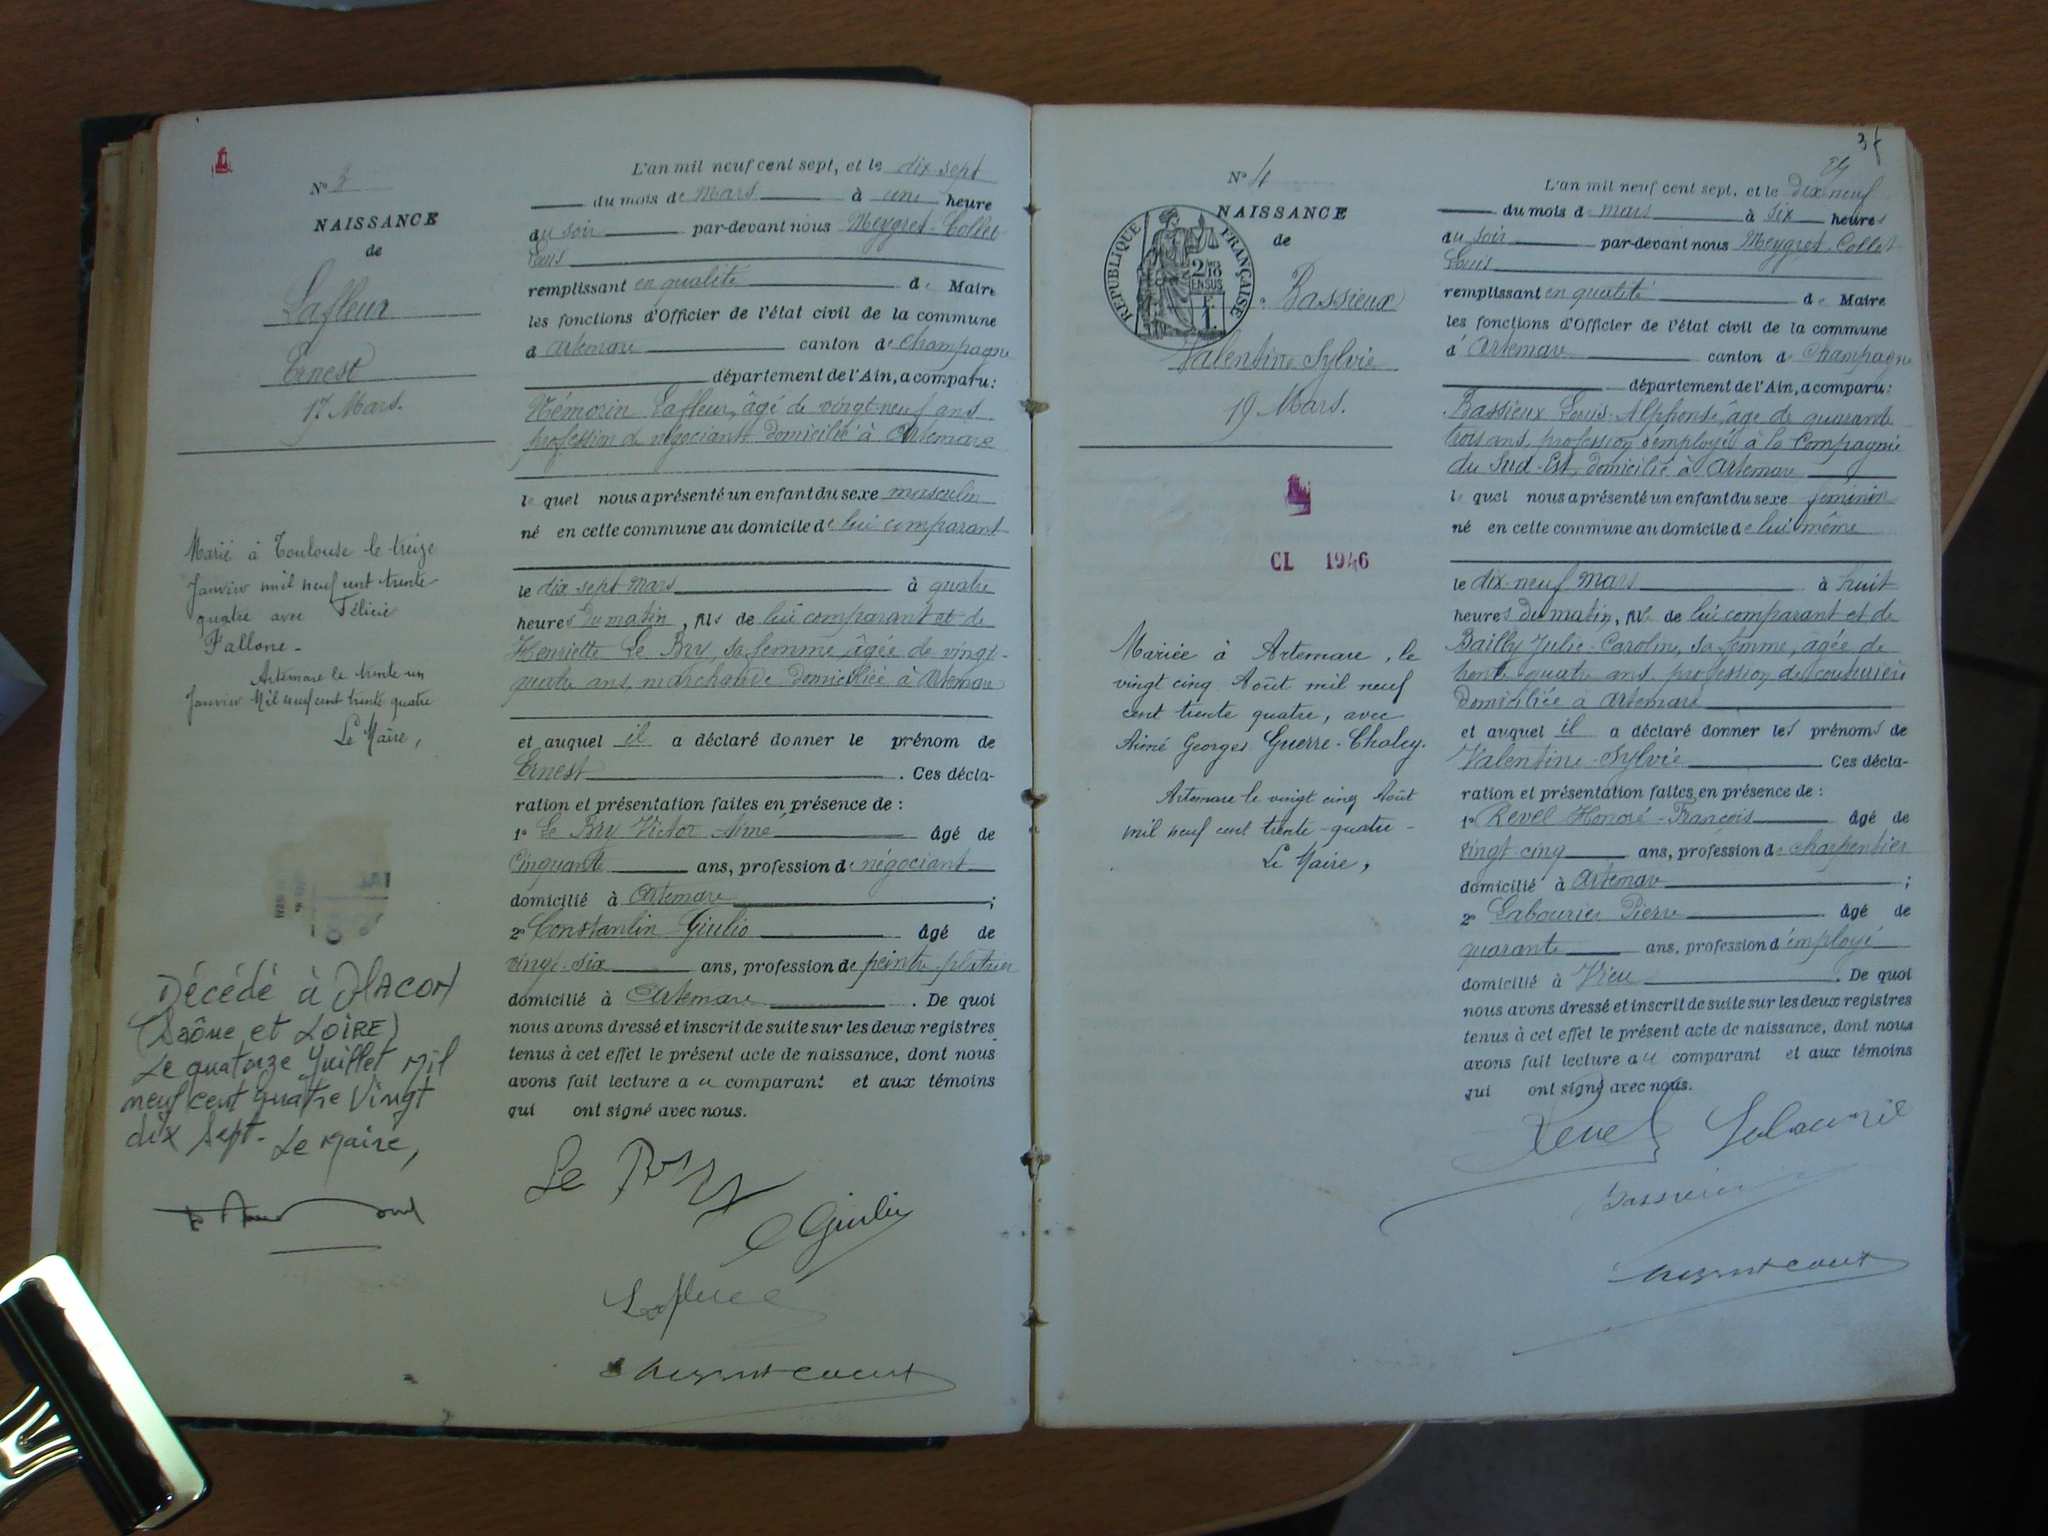 N° 3
NAISSANCE
de
Lafleur
Ernest
17 Mars.
Marié à Toulouse le treize
Janvier mil neuf cent trente
quatre avec Félicie
Fallone -
Artemare le trente un
Janvier Mil neuf cent trente quatre
Le Maire,
Décédé à MACON
(Saône et LOIRE)
Le quatorze Juillet Mil
neuf cent Quatre Vingt
dix Sept - Le Maire,
L'an mil neuf cent sept, et le dix sept
du mois de mars à une heure
du soir par-devant nous Meygret-Collet
Louis
remplissant en qualité de Maire
les fonctions d'Officier de l'état civil de la commune
d'Artemare canton de Champagne
département de l'Ain, a comparu:
Némorin Lafleur, âgé de vingt-neuf ans
profession de négociant domicilié à Artemare
le quel nous a présenté un enfant du sexe masculin
né en cette commune au domicile de lui comparant
le dix sept mars à quatre
heures du matin, fils de lui comparant et de
Henriette Le Bry, sa femme, âgée de vingt-
quatre ans, marchande domiciliée à Artemare
et auquel il a déclaré donner le prénom de
Ernest. Ces décla-
ration et présentation faites en présence de :
1° Le Bry Victor Aimé âgé de
Cinquante ans, profession de négociant
domicilié à Artemare ;
2° Constantin Giulio âgé de
vingt-six ans, profession de peintre-plâtrier
domicilié à Artemare. De quoi
nous avons dressé et inscrit de suite sur les deux registres
tenus à cet effet le présent acte de naissance, dont nous
avons fait lecture au comparant et aux témoins
qui ont signé avec nous.
Le Bry
C Giulio
Lafleur
37
24
N° 4
NAISSANCE
de
RÉPUBLIQUE FRANÇAISE
2/10
EN SUS
Bassieux
Valentine Sylvie
19 Mars.
CL 1946
Mariée à Artemare, le
vingt cinq Août mil neuf
cent trente quatre, avec
Aimé Georges Guerre-Chaley.
Artemare le vingt cinq Août
mil neuf cent trente-quatre -
Le Maire,
L'an mil neuf cent sept, et le dix-neuf
du mois de mars à six heures
du soir par-devant nous Meygret-Collet
Louis
remplissant en qualité de Maire
les fonctions d'Officier de l'état civil de la commune
d'Artemare canton de Champagne
département de l'Ain, a comparu:
Bassieux Louis-Alphonse, âgé de quarante
trois ans, profession d'employé à la Compagnie
du Sud-Est, domicilié à Artemare
le quel nous a présenté un enfant du sexe féminin
né en cette commune au domicile de lui même
le dix-neuf mars à huit
heures du matin, fille de lui comparant et de
Bailly Julie-Caroline, sa femme, âgée de
trente quatre ans, profession de couturière
domiciliée à Artemare
et auquel il a déclaré donner les prénoms de
Valentine-Sylvie Ces décla-
ration et présentation faites en présence de :
1° Revel Honoré-François âgé de
vingt cinq ans, profession de charpentier
domicilié à Artemare ;
2° Labourier Pierre âgé de
quarante ans, profession d'employé
domicilié à Vieu. De quoi
nous avons dressé et inscrit de suite sur les deux registres
tenus à cet effet le présent acte de naissance, dont nous
avons fait lecture au comparant et aux témoins
qui ont signé avec nous.
Revel Labourier
Bassieux